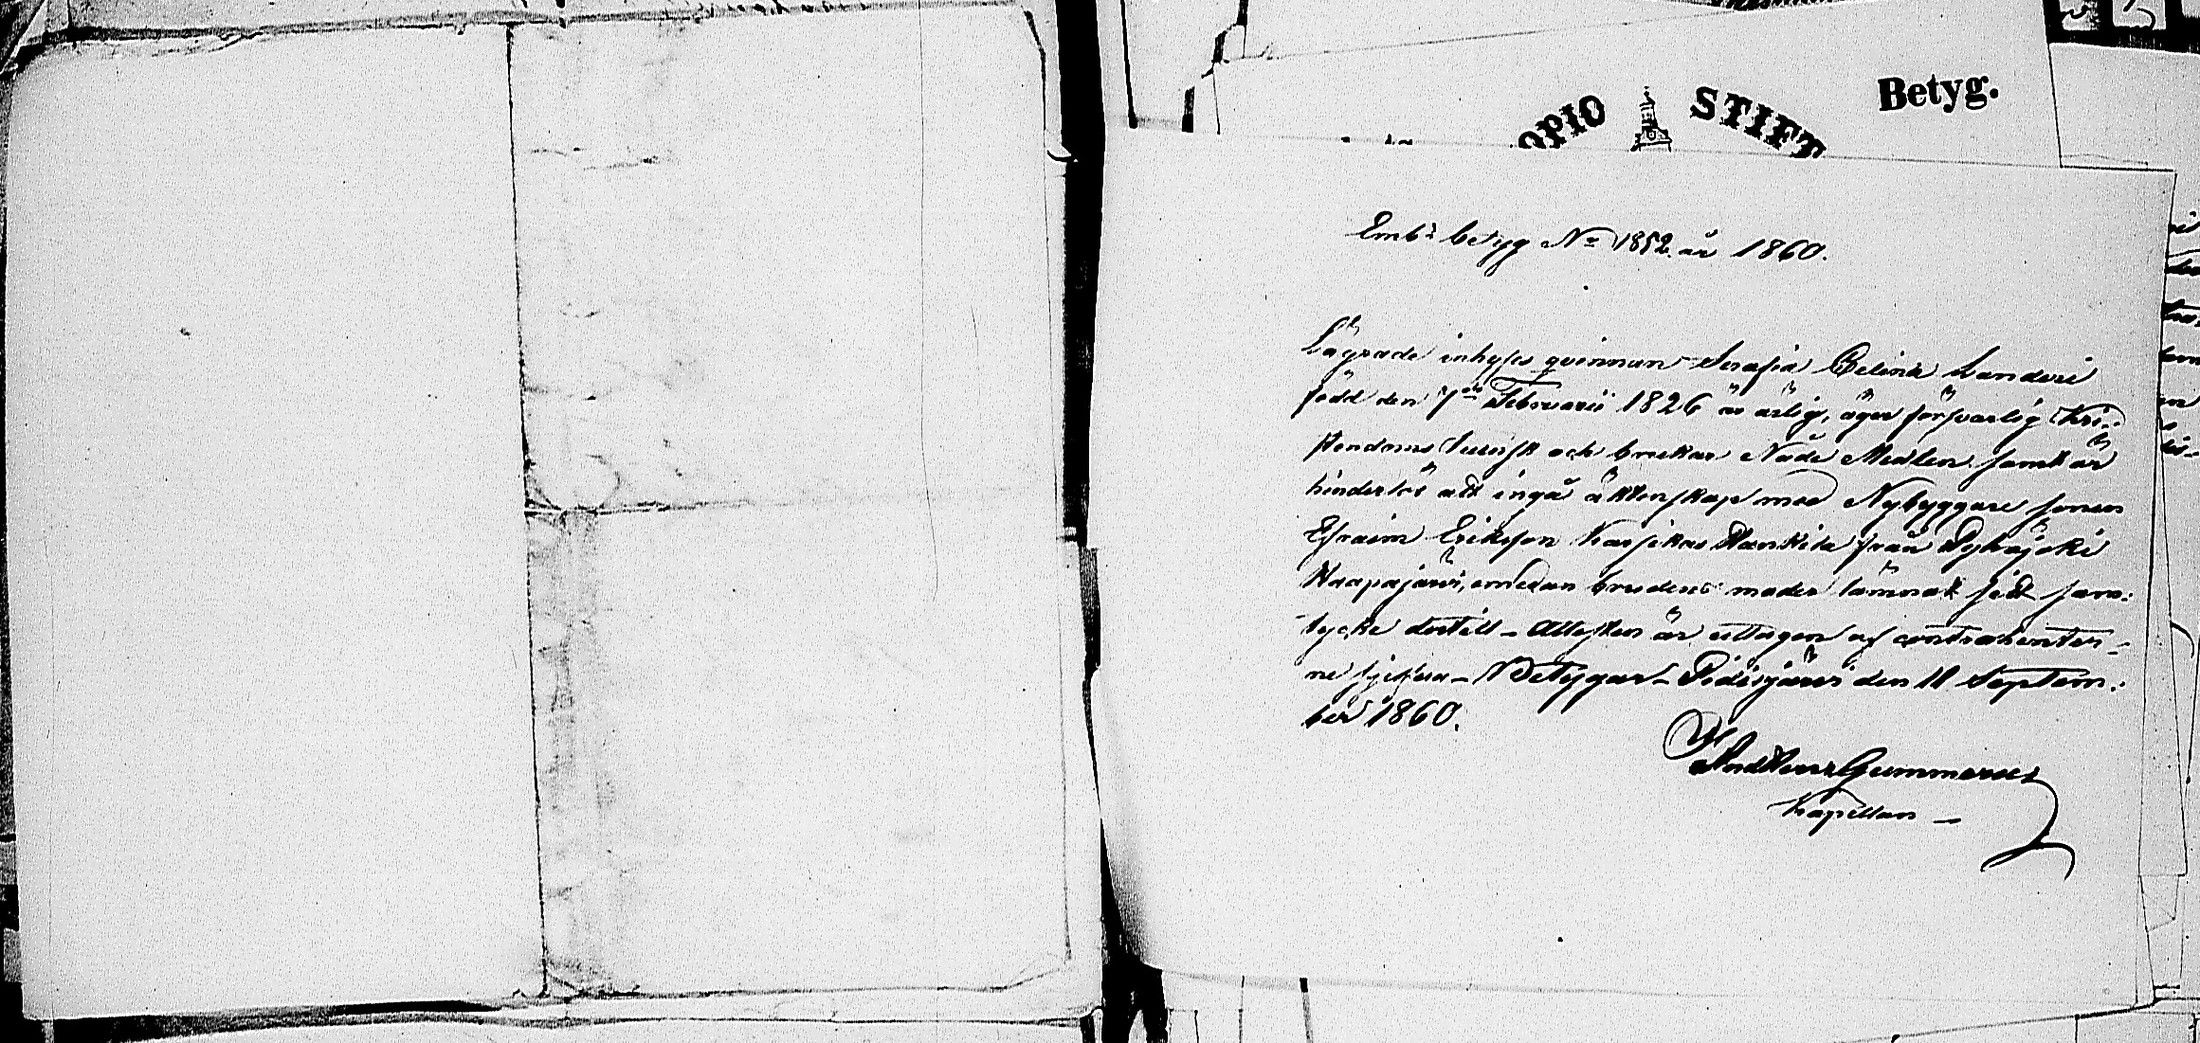 Betyg.
OPIO STIFT
Emb:s betyg No 1852. år 1860.
Lägrade inhyses qvinnan Serafia Celina Landeri
född den 7de Februarii 1826 är ärlig, äger försvarlig Kri:
stendoms kunsk och brukar Nåde Medlen samt är
hinderlös att ingå äktenskap med Nybyggare sonen
Efraim Eriksson Karsikas Hankila från Pyhäjoki
Haapajärvi, emedan brudens moder lämnat sitt sam:
tycke dertill – Attesten är uttagen af contrahenter-
ne sjelfva – Betygar – Pidisjärvi den 11 Septem:
ber 1860.
Gummerus
Kapellan –